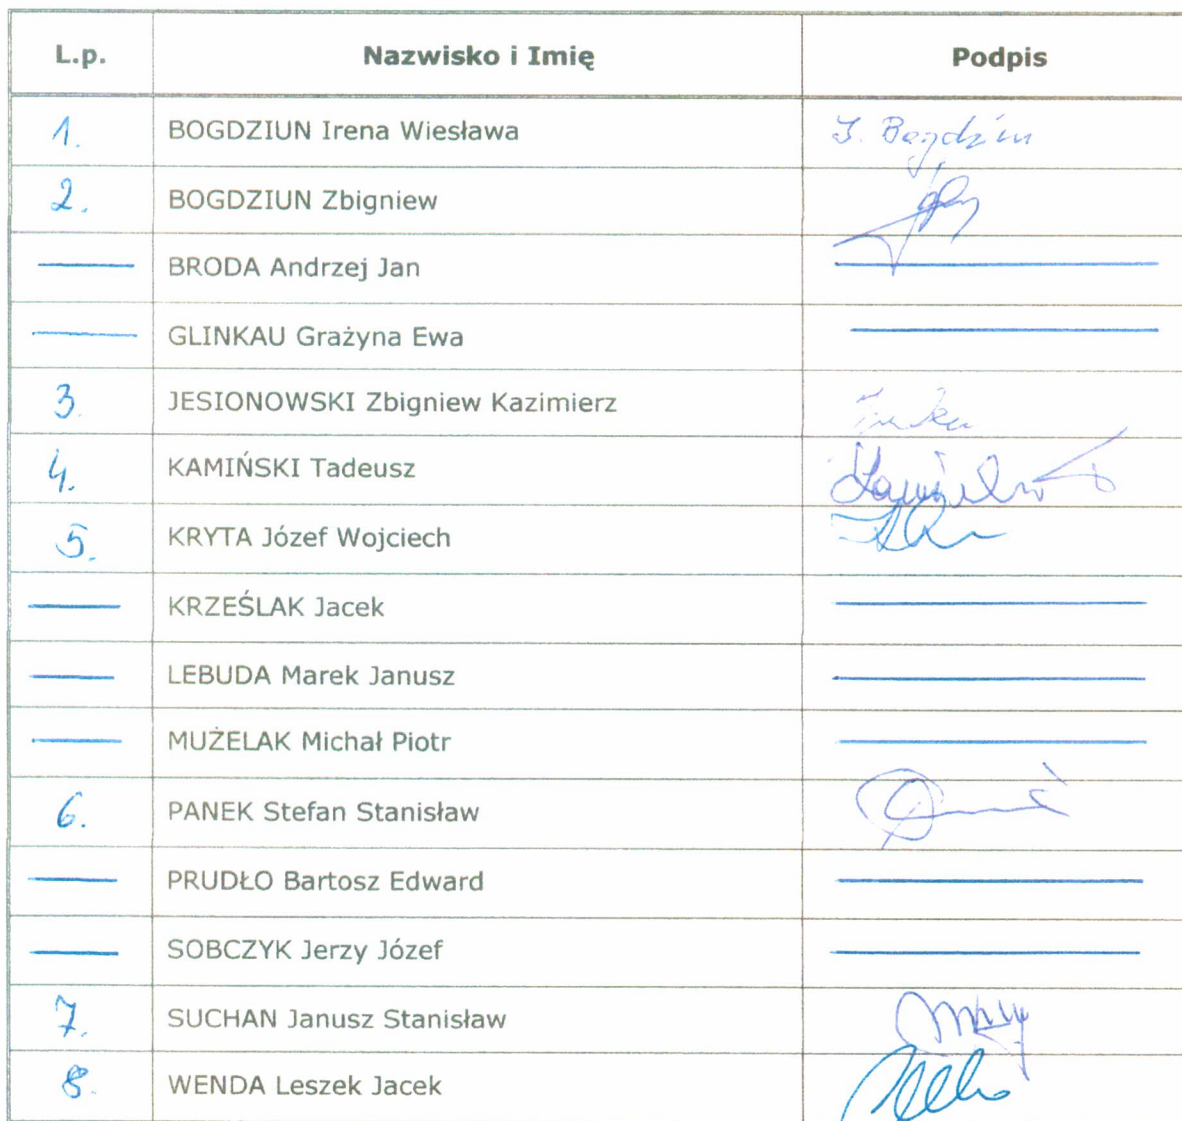 L.p. Nazwisko i Imię Podpis
1. BOGDZIUN Irena Wiesława
2. BOGDZIUN Zbigniew
BRODA Andrzej Jan
GLINKAU Grażyna Ewa
3. JESIONOWSKI Zbigniew Kazimierz
4. KAMIŃSKI Tadeusz
5. KRYTA Józef Wojciech
KRZEŚLAK Jacek
LEBUDA Marek Janusz
MUŻELAK Michał Piotr
6. PANEK Stefan Stanisław
PRUDŁO Bartosz Edward
SOBCZYK Jerzy Józef
7. SUCHAN Janusz Stanisław
8. WENDA Leszek Jacek